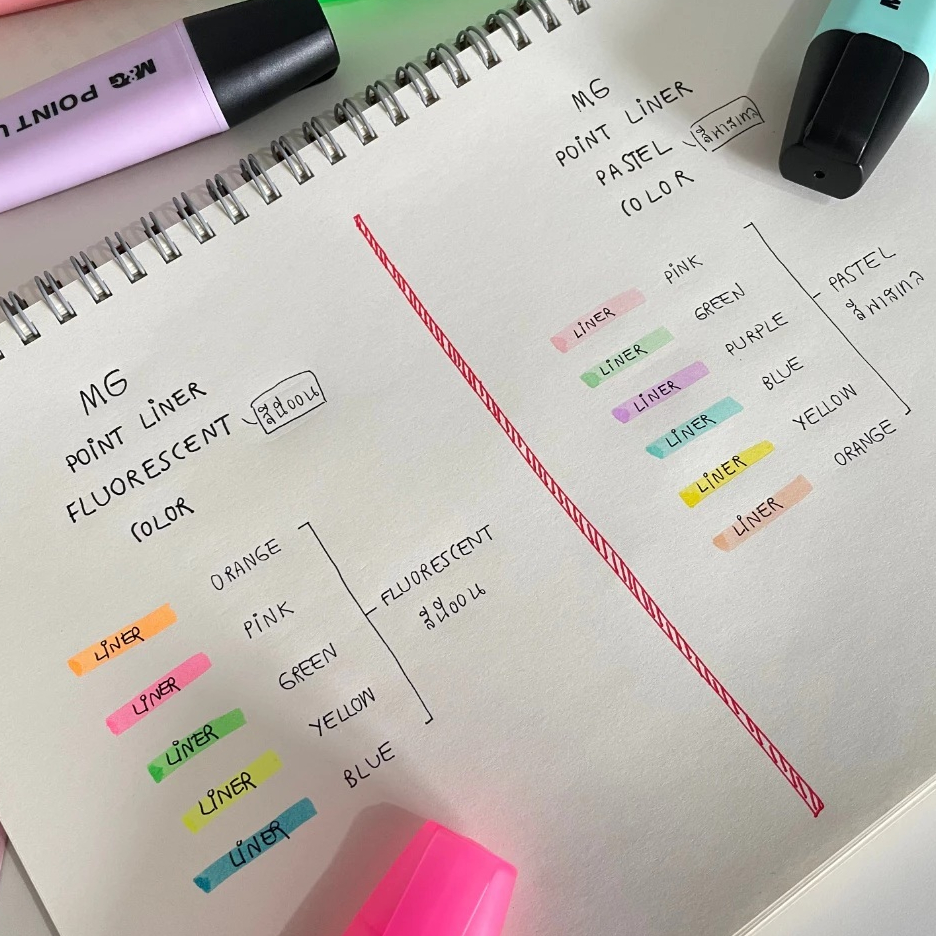 M&G POINT L
MG
POINT LINER
FLUORESCENT สีนีออน
COLOR
LINER ORANGE
LINER PINK
LINER GREEN
LINER YELLOW
LINER BLUE
FLUORESCENT
สีนีออน
MG
POINT LINER
PASTEL สีพาสเทล
COLOR
LINER PINK
LINER GREEN
LINER PURPLE
LINER BLUE
LINER YELLOW
LINER ORANGE
PASTEL
สีพาสเทล